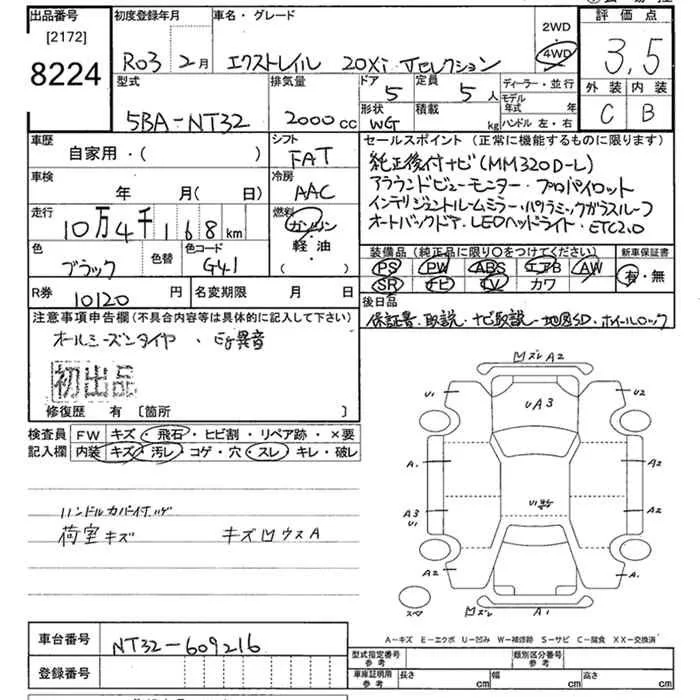 出品番号
[2172]
8224
初度登録年月
R03 2月
車名・グレード
エクストレイル 20Xi Vセレクション
2WD
4WD
評価点
3.5
外装 内装
C B
型式
5BA-NT32
排気量
2000 cc
ドア
5
定員
5 人
形状
WG
積載
kg
ディーラー・並行
モデル年式 年
ハンドル 左・右
車歴
自家用・( )
シフト
FAT
車検
年 月( 日)
冷房
AAC
走行
10万4千168 km
燃料
ガソリン
軽油
( )
色
ブラック
色替
色コード
G41
R券
10120 円
名変期限 月 日
セールスポイント (正常に機能するものに限ります)
純正後付ナビ(MM320D-L)
アラウンドビューモニター・プロパイロット
インテリジェントルームミラー・パノラミックガラスルーフ
オートバックドア・LEDヘッドライト・ETC2.0
装備品 (純正品に限り〇をつけてください)
PS PW ABS エアB AW
SR ナビ TV カワ
新車保証書
有・無
後日品
保証書・取説・ナビ取説・地図SD・ホイールロック
注意事項申告欄(不具合内容等は具体的に記入して下さい)
オールシーズンタイヤ ・ Eg異音
初出品
修復歴 有 [箇所 ]
検査員記入欄
FW キズ・飛石・ヒビ割・リペア跡・×要
内装 キズ・汚レ・コゲ・穴・スレ・キレ・破レ
ハンドルカバー付
荷室キズ キズ凹ウスA
凹ズレ A2
U1
UA3
U2
A.
A2
A3
U1
U1
A2
A2
A.
スペア
凹ズレ A1
A-キズ E-エクボ U-凹み W-補修跡 S-サビ C-腐食 XX-交換済
車台番号
NT32-609216
登録番号
型式指定番号
参考
類別区分番号
参考
車庫証明用
参考
長さ cm
幅 cm
高さ cm